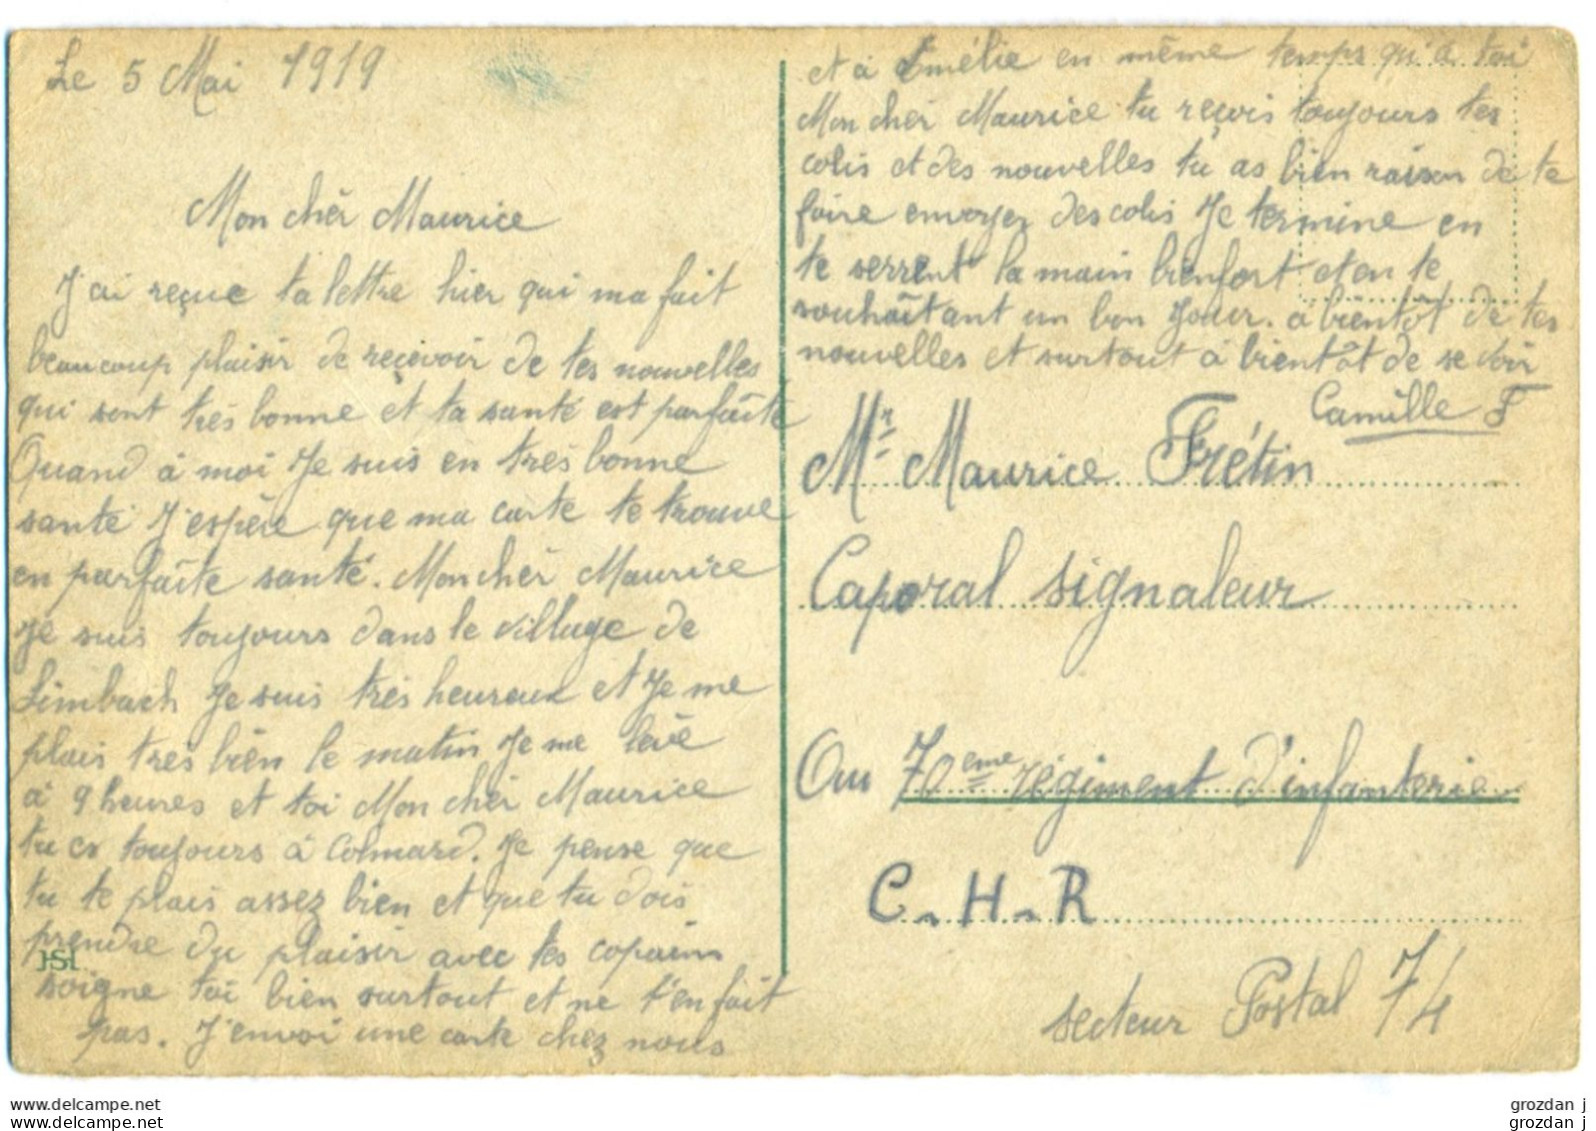 Le 5 Mai 1919
Mon chèr Maurice
J'ai reçue ta lettre hier qui ma fait
beaucoup plaisir de reçevoir de tes nouvelles
qui sont très bonne et ta santé est parfaîte
Quand à moi Je suis en très bonne
santé J'espère que ma carte te trouve
en parfaîte santé. Mon chèr Maurice
Je suis toujours dans le village de
Limbach Je suis très heureux et Je me
plais très bien le matin Je me lève
à 9 heures et toi Mon chèr Maurice
tu es toujours à Colmard. Je pense que
tu te plais assez bien et que tu dois
prendre du plaisir avec tes copains
soigne toi bien surtout et ne t'en fait
pas. J'envoi une carte chez nous
JSL
et à Emélie en même temps qu'à toi
Mon chèr Maurice tu reçois toujours tes
colis et des nouvelles tu as bien raison de te
faire envoyez des colis Je termine en
te serrent la main bienfort et en te
souhaîtant un bon Jour. à bientôt de tes
nouvelles et surtout à bientôt de se voir
Camille F
Mr Maurice Frétin
Caporal signaleur
Au 70eme régiment d'infanterie
C.H.R
secteur Postal 74
grozdan j
grozdan j